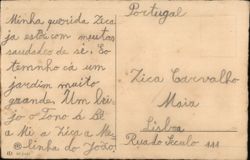 Minha querida Zica
ja estou com muitas
saudades de ti. Eu
tenho cá um
jardim muito
grande. Um bei-
jo o Tono á Bé
a Mi a Zica a Me-
linha do João
Portugal
Zica Carvalho
Maia
Lisboa
Rua do Seculo 111